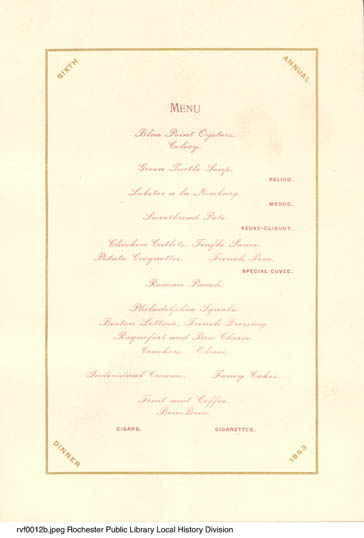 SIXTH
ANNUAL
MENU
Blue Point Oysters.
Celery.
Green Turtle Soup.
PALIDO.
Lobster a la Newburg.
MEDOC.
Sweetbread Pate.
VEUVE-CLIQUOT.
Chicken Cutlets, Truffle Sauce.
Potato Croquettes. French Peas.
SPECIAL CUVEE.
Roman Punch.
Philadelphia Squabs.
Boston Lettuce, French Dressing
Roquefort and Brie Cheese.
Crackers. Olives.
Individual Creams. Fancy Cakes.
Fruit and Coffee.
BonBons.
CIGARS. CIGARETTES.
DINNER
1893
rvf0012b.jpeg Rochester Public Library Local History Division